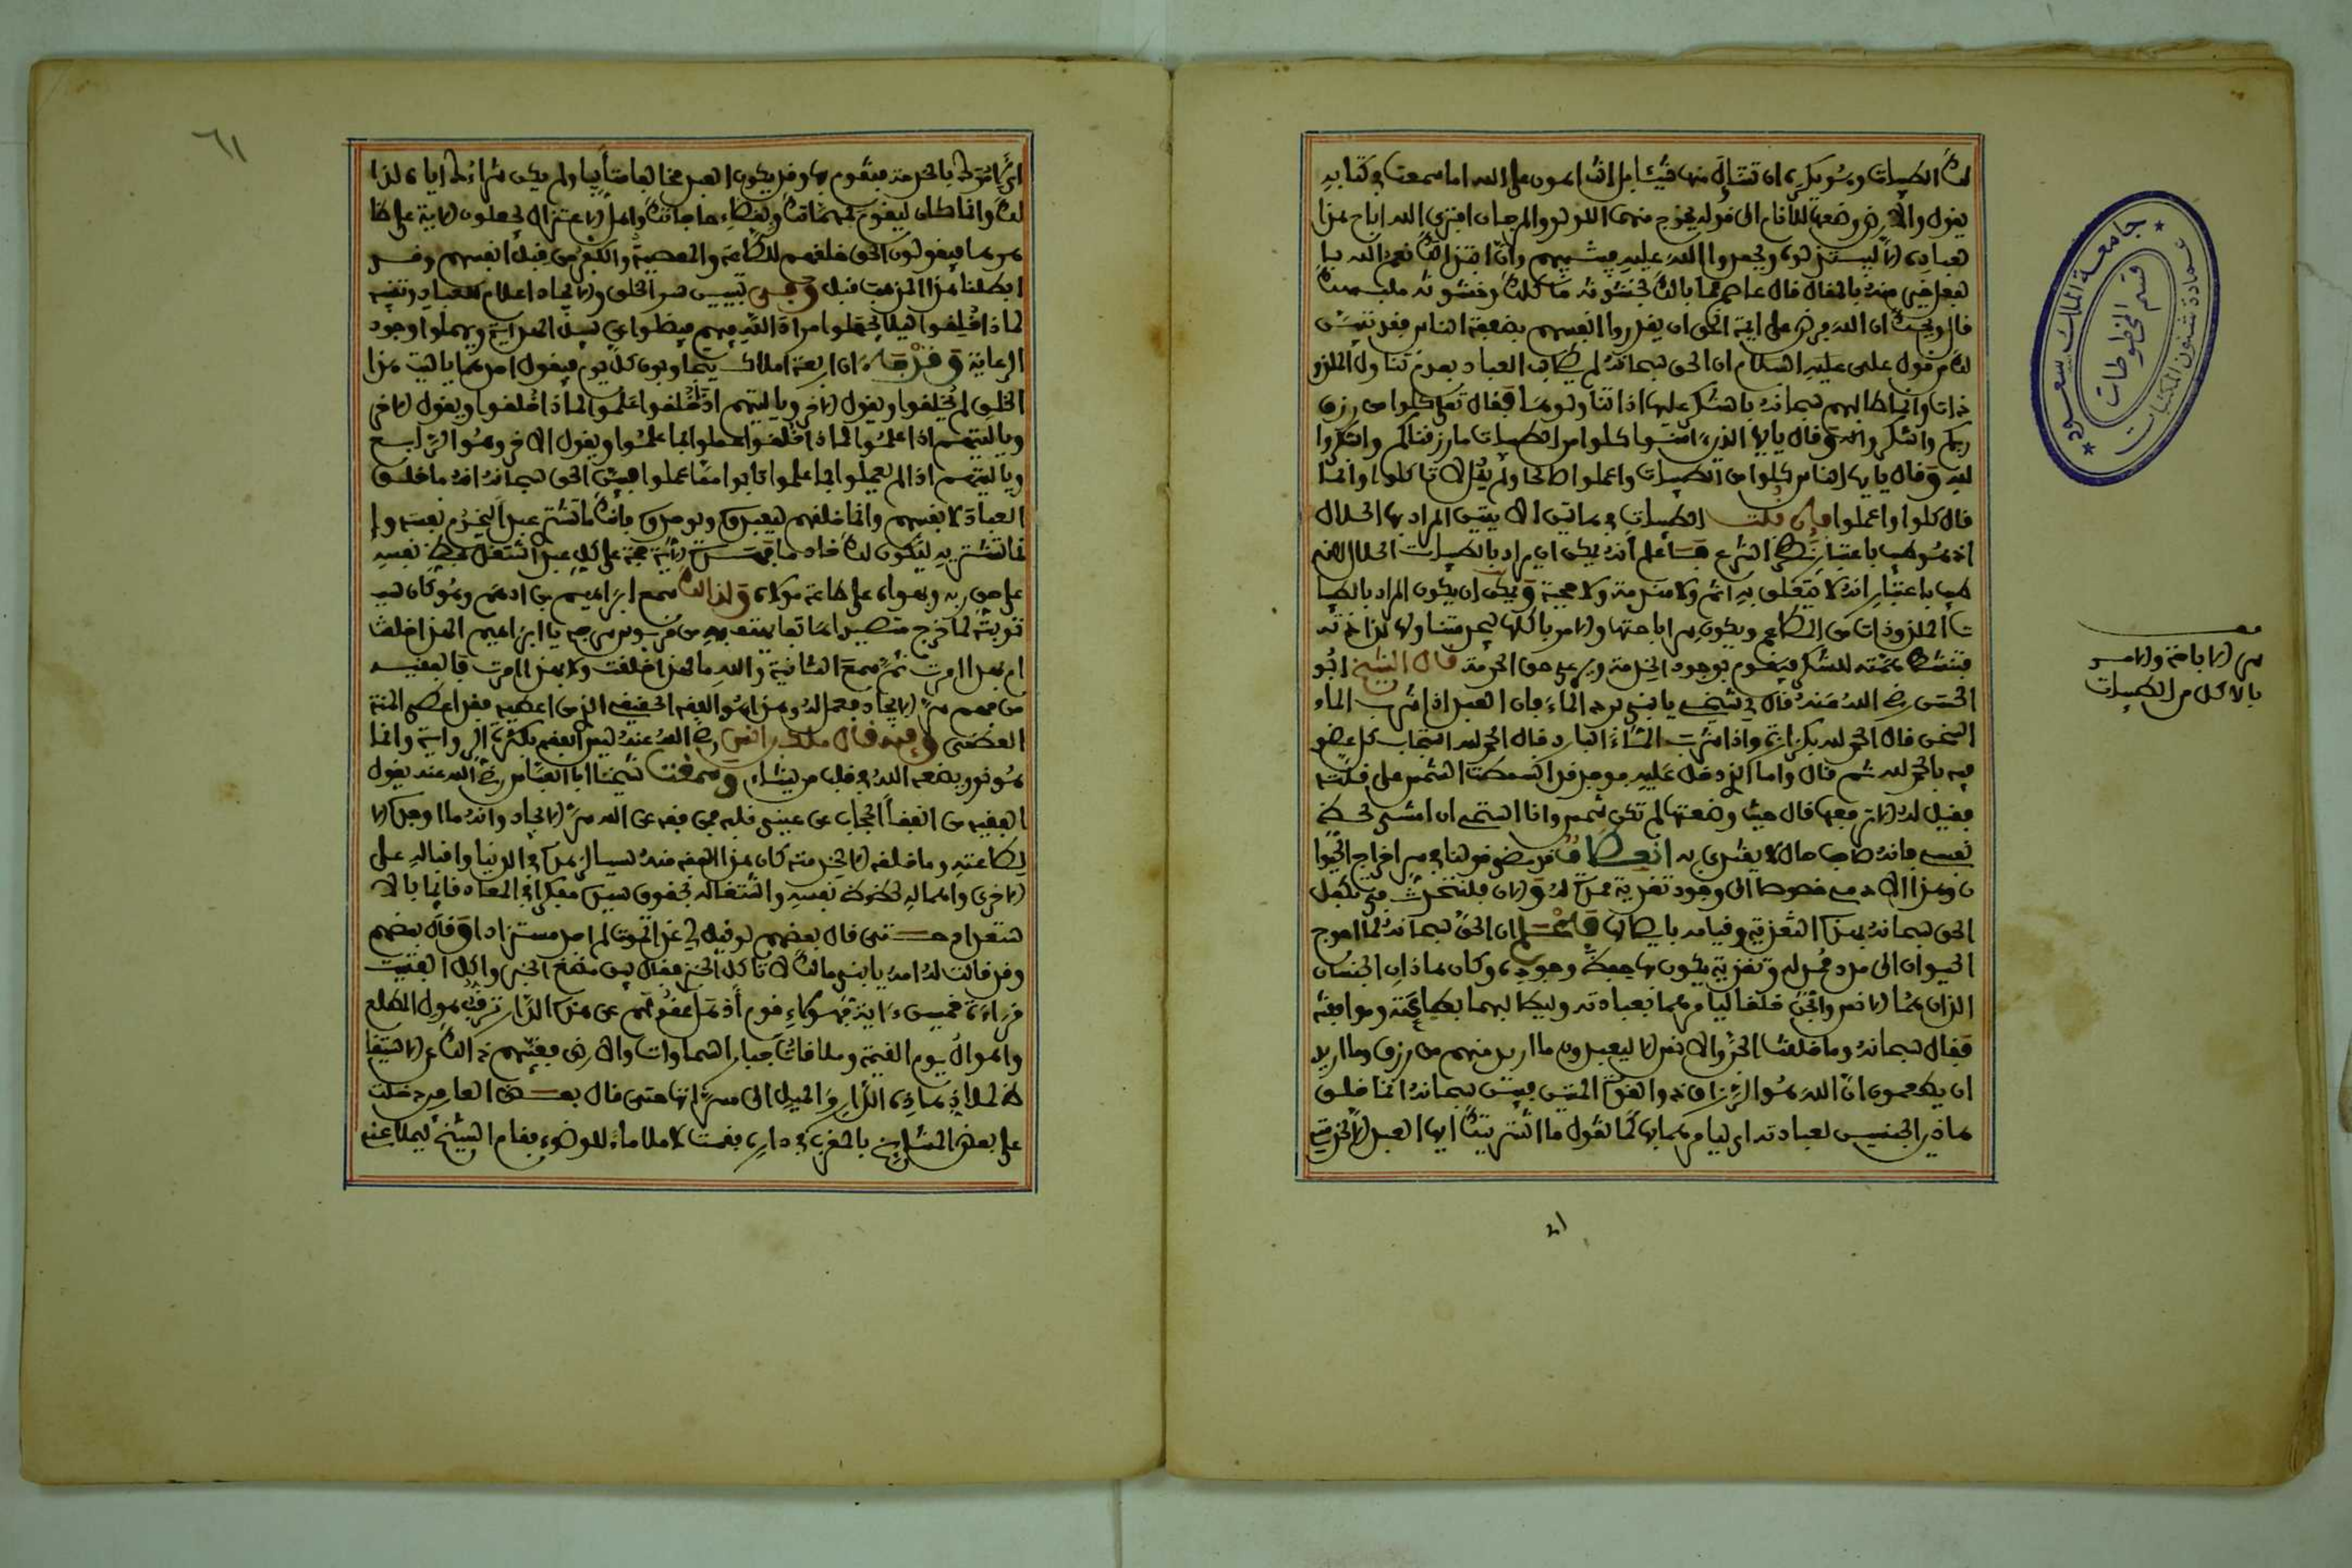 لك الطيبات وهو يكره ان تنال منها شيئا بل انت اهون على الله اما سمعت في كتابه
يقول والارض وضعها للانام الى قوله يخرج منهما اللؤلؤ والمرجان افترى الله اباح هذا
لعباده الا ليبتذلوه ويحمدوا الله عليه فيثيبهم وان ابتذالك نعم الله با
لفعل خير منه بالمقال قال عاصم فما بالك في خشونة ماكلك وخشونة ملبسك
قال ويحك ان الله فرض على ايمة الحق ان يقدروا انفسهم بضعفة الناس فقد تبين
لك من قول علي عليه السلام ان الحق سبحانه لم يطالب العباد بعدم تناول الملذو
ذات وانما طالبهم سبحانه بالشكر عليها اذا تناولوها فقال تعلى كلوا من رزق
ربكم واشكروا له وقال يايها الذين ءامنوا كلوا من الطيبات ما رزقناكم واشكروا
لله وقال يايها الناس كلوا من الطيبات واعملوا صالحا ولم يقل لا تاكلوا وانما
قال كلوا واعملوا فان قلت الطيبات في هاتين الايتين المراد بها الحلال
اذ هو طيب باعتبار نظر الشرع فاعلم انه يمكن ان يراد بالطيبات الحلال لانه
طيب باعتبار انه لا يتعلق به اثم ولا مذمة ولا حجبة ويمكن ان يكون المراد بالطيبا
ت الملذوذات من المطاعم ويكون سر اباحتها والامر باكلها ليجد متناولها لذاذته
فتنشط همته للشكر فيقوم بوجود الخدمة ويرعى حق الحرمة قال الشيخ ابو
الحسن رضي الله عنه قال لي شيخي يا بني برد الماء فان العبد اذا شرب الماء
السخن قال الحمد لله بكزازة واذا شرب الماء البارد قال الحمد لله استجاب كل عضو
فيه بالحمد لله ثم قال واما الذي دخل عليه فوجد قد انبسطت الشمس على قلته
فقيل له الا ترفعها قال حين وضعتها لم تكن شمس وانا استحي ان امشي لحظ
نفسي فانه صاحب حال لا يقتدى به انعطاف قد مضى قولنا في سر احواج الحيوا
ن وهذا الادمي خصوصا الى وجود تغذية تمده والان فلنتحدث في تكفل
الحق سبحانه بهذه التغذية وقيامه بايصالها فاعلم ان الحق سبحانه لما احوج
الحيوان الى مدد ممد له وتغذية يكون بها حفظ وجوده وكان هاذان الجنسان
اللذان هما الانس والجن خلقا ليامرهما بعبادته ويطالبهما بطاعته وموافقته
فقال سبحانه وما خلقت الجن والانس الا ليعبدون ما اريد منهم من رزق وما اريد
ان يطعمون ان الله هو الرزاق ذو القوة المتين فبين سبحانه انما خلق
هاذين الجنسين لعبادته اي ليامرهما بها كما تقول ما اشتريتك ايها العبد الا لخدمتي
سر الاباحة والامر
بالاكل من الطيبات
جامعة الملك سعود
عمادة شئون المكتبات
قسم المخطوطات
٦١
اي لامرك بالخدمة فتقوم بها وقد يكون العبد مخالفا متابيا ولم يكن شراءك اياه لذا
لك وانما كان ليقوم بمهماتك ويقضاء حاجاتك واهل الاعتزال يحملون الاية على ظا
هرها فيقولون الحق خلقهم للطاعة والمعصية والكفر من قبل انفسهم وقد
ابطلنا هذا المذهب قبل وفي تبيين سر الخلق والايجاد اعلام للعباد وتنبيه
لماذا خلقوا ليلا يجهلوا مراد الله فيهم فيضلوا عن سبيل الهداية ويهملوا وجود
الرعاية وقد جاء ان اربعة املاك يتجاوبون كل يوم فيقول احدهما يا ليت هذا
الخلق لم يخلقوا ويقول الاخر ويا ليتهم اذ خلقوا علموا لماذا خلقوا ويقول الاخر
ويا ليتهم اذا علموا لماذا خلقوا عملوا بما علموا ويقول الاخر وهو الرابع
ويا ليتهم اذا لم يعملوا بما علموا تابوا مما عملوا فبين الحق سبحانه انه ما خلق
العباد لانفسهم وانما خلقهم ليعبدوه ويوحدوه فانك ما تشتري عبدا ليخدم نفسه وا
نما تشتريه ليكون لك خادما فهذه الاية حجة على كل عبد اشتغل بحظ نفسه
عن حق ربه وبهواه عن طاعة مولاه ولذالك سمع ابراهيم بن ادهم وهو كان سبب
توبته لما خرج متصيدا هاتفا يهتف به من قربوس سرجه يا ابراهيم الهذا خلقت
ام بهذا امرت ثم سمع الثانية والله ما لهذا خلقت ولا بهذا امرت فالفقيه
من فهم سر الايجاد فعمل له وهذا هو الفقه الحقيقي الذي من اعطيه فقد اعطي المنة
العظمى وفيه قال ملك بن انس رضي الله عنه ليس الفقه بكثرة الرواية وانما
هو نور يضعه الله في قلب من يشاء وسمعت شيخنا ابا العباس رضي الله عنه يقول
الفقيه من انفقا الحجاب عن عيني قلبه فمن فقه عن الله سر الايجاد وانه ما اوجده الا
لطاعته وما خلقه الا لخدمته كان هذا الفقه منه سببا لزهده في الدنيا واقباله على
الاخرى واهماله لحظوظ نفسه واشتغاله بحقوق سيده مفكرا في المعاد قائما بالا
ستعداد حتى قال بعضهم لو قيل لي غدا تموت لم اجد مستزادا وقال بعضهم
وقد قالت له امه يا بني مالك لا تاكل الخبز فقال بين مضغ الخبز واكل الفتيت
قراءة خمسين ءاية فهؤلاء قوم اذهل عقولهم عن هذه الدار ترقب هول المطلع
واهوال يوم القيمة وملاقات جبار السماوات والارض فغيبهم ذالك عن الاستيقا
ظ لملاذ هاذه الدار والميل الى مسراتها حتى قال بعض العارفين دخلت
على بعض المشايخ بالمغرب في داره فقمت لاملا ماء للوضوء فقام الشيخ ليملا عني